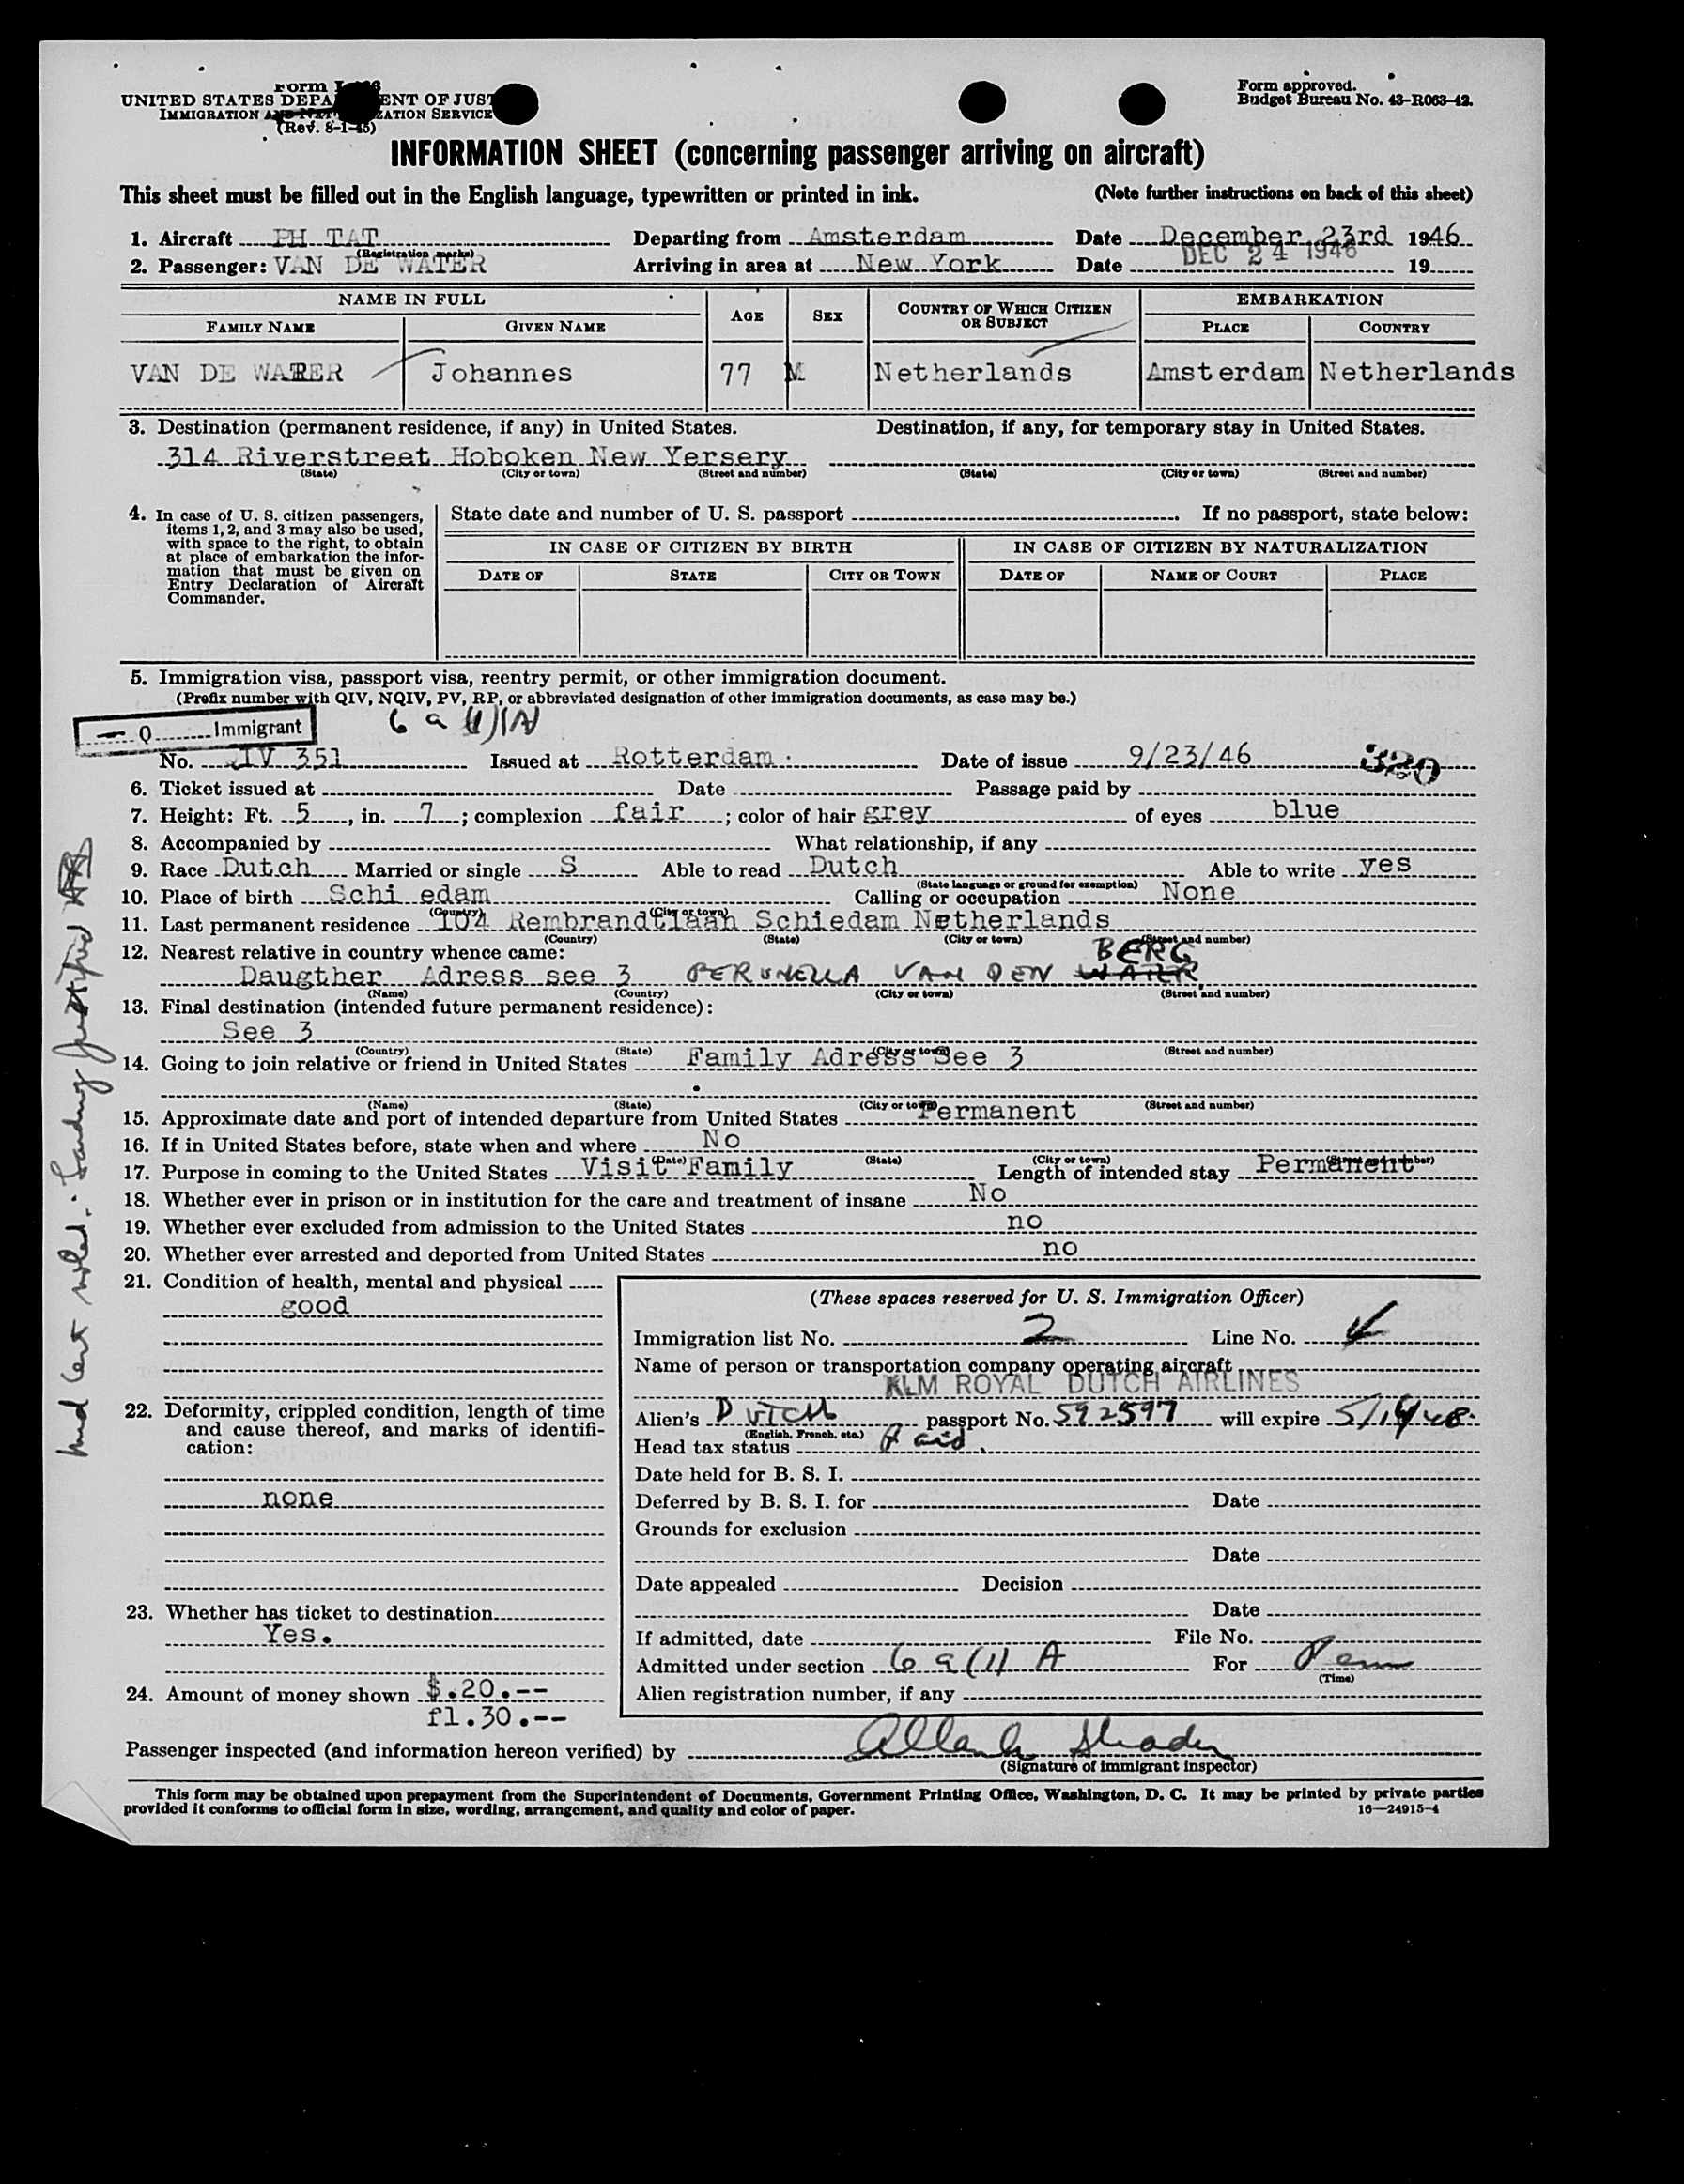 Form I-
UNITED STATES DEPA ENT OF JUST
IMMIGRATION AND NAT ZATION SERVICE
(Rev. 8-1-45)
Form approved.
Budget Bureau No. 43-R063-42.
INFORMATION SHEET (concerning passenger arriving on aircraft)
This sheet must be filled out in the English language, typewritten or printed in ink. (Note further instructions on back of this sheet)
1. Aircraft PH TAT Departing from Amsterdam Date December 23rd 1946
(Registration marks)
2. Passenger: VAN DE WATER Arriving in area at New York Date DEC 24 1946 19
NAME IN FULL AGE SEX COUNTRY OF WHICH CITIZEN OR SUBJECT EMBARKATION
FAMILY NAME GIVEN NAME PLACE COUNTRY
VAN DE WATER Johannes 77 M Netherlands Amsterdam Netherlands
3. Destination (permanent residence, if any) in United States. Destination, if any, for temporary stay in United States.
314 Riverstreet Hoboken New Yersery
(State) (City or town) (Street and number) (State) (City or town) (Street and number)
4. In case of U. S. citizen passengers,
items 1, 2, and 3 may also be used,
with space to the right, to obtain
at place of embarkation the infor-
mation that must be given on
Entry Declaration of Aircraft
Commander.
State date and number of U. S. passport . If no passport, state below:
IN CASE OF CITIZEN BY BIRTH IN CASE OF CITIZEN BY NATURALIZATION
DATE OF STATE CITY OR TOWN DATE OF NAME OF COURT PLACE
5. Immigration visa, passport visa, reentry permit, or other immigration document.
(Prefix number with QIV, NQIV, PV, RP, or abbreviated designation of other immigration documents, as case may be.)
Q Immigrant 6 a (1)(A)
No. IV 351 Issued at Rotterdam Date of issue 9/23/46 320
6. Ticket issued at Date Passage paid by
7. Height: Ft. 5, in. 7; complexion fair; color of hair grey of eyes blue
8. Accompanied by What relationship, if any
9. Race Dutch Married or single S Able to read Dutch Able to write yes
(State language or ground for exemption)
10. Place of birth Schi edam Calling or occupation None
(Country) (City or town)
11. Last permanent residence 104 Rembrandtlaan Schiedam Netherlands
(Country) (State) (City or town) (Street and number)
12. Nearest relative in country whence came: BERG
Daugther Adress see 3 PERUNELLA VAN DEN WATER
(Name) (Country) (City or town) (Street and number)
13. Final destination (intended future permanent residence):
See 3
(Country) (State) (City or town) (Street and number)
14. Going to join relative or friend in United States Family Adress See 3
(Name) (State) (City or town) (Street and number)
15. Approximate date and port of intended departure from United States Permanent
16. If in United States before, state when and where No
(Date) (State) (City or town) (Street and number)
17. Purpose in coming to the United States Visit Family Length of intended stay Permanent
18. Whether ever in prison or in institution for the care and treatment of insane No
19. Whether ever excluded from admission to the United States no
20. Whether ever arrested and deported from United States no
21. Condition of health, mental and physical
good
22. Deformity, crippled condition, length of time
and cause thereof, and marks of identifi-
cation:
none
23. Whether has ticket to destination
Yes.
24. Amount of money shown $.20.--
fl.30.--
(These spaces reserved for U. S. Immigration Officer)
Immigration list No. 2 Line No. 4
Name of person or transportation company operating aircraft
KLM ROYAL DUTCH AIRLINES
Alien's DUTCH passport No. 592597 will expire 5/19/48.
(English, French, etc.)
Head tax status Paid.
Date held for B. S. I.
Deferred by B. S. I. for Date
Grounds for exclusion
Date
Date appealed Decision
Date
If admitted, date File No.
Admitted under section 6 a (1) A For Perm
(Time)
Alien registration number, if any
Passenger inspected (and information hereon verified) by
(Signature of immigrant inspector)
This form may be obtained upon prepayment from the Superintendent of Documents, Government Printing Office, Washington, D. C. It may be printed by private parties
provided it conforms to official form in size, wording, arrangement, and quality and color of paper. 16—24915-4
Med Cert noted.